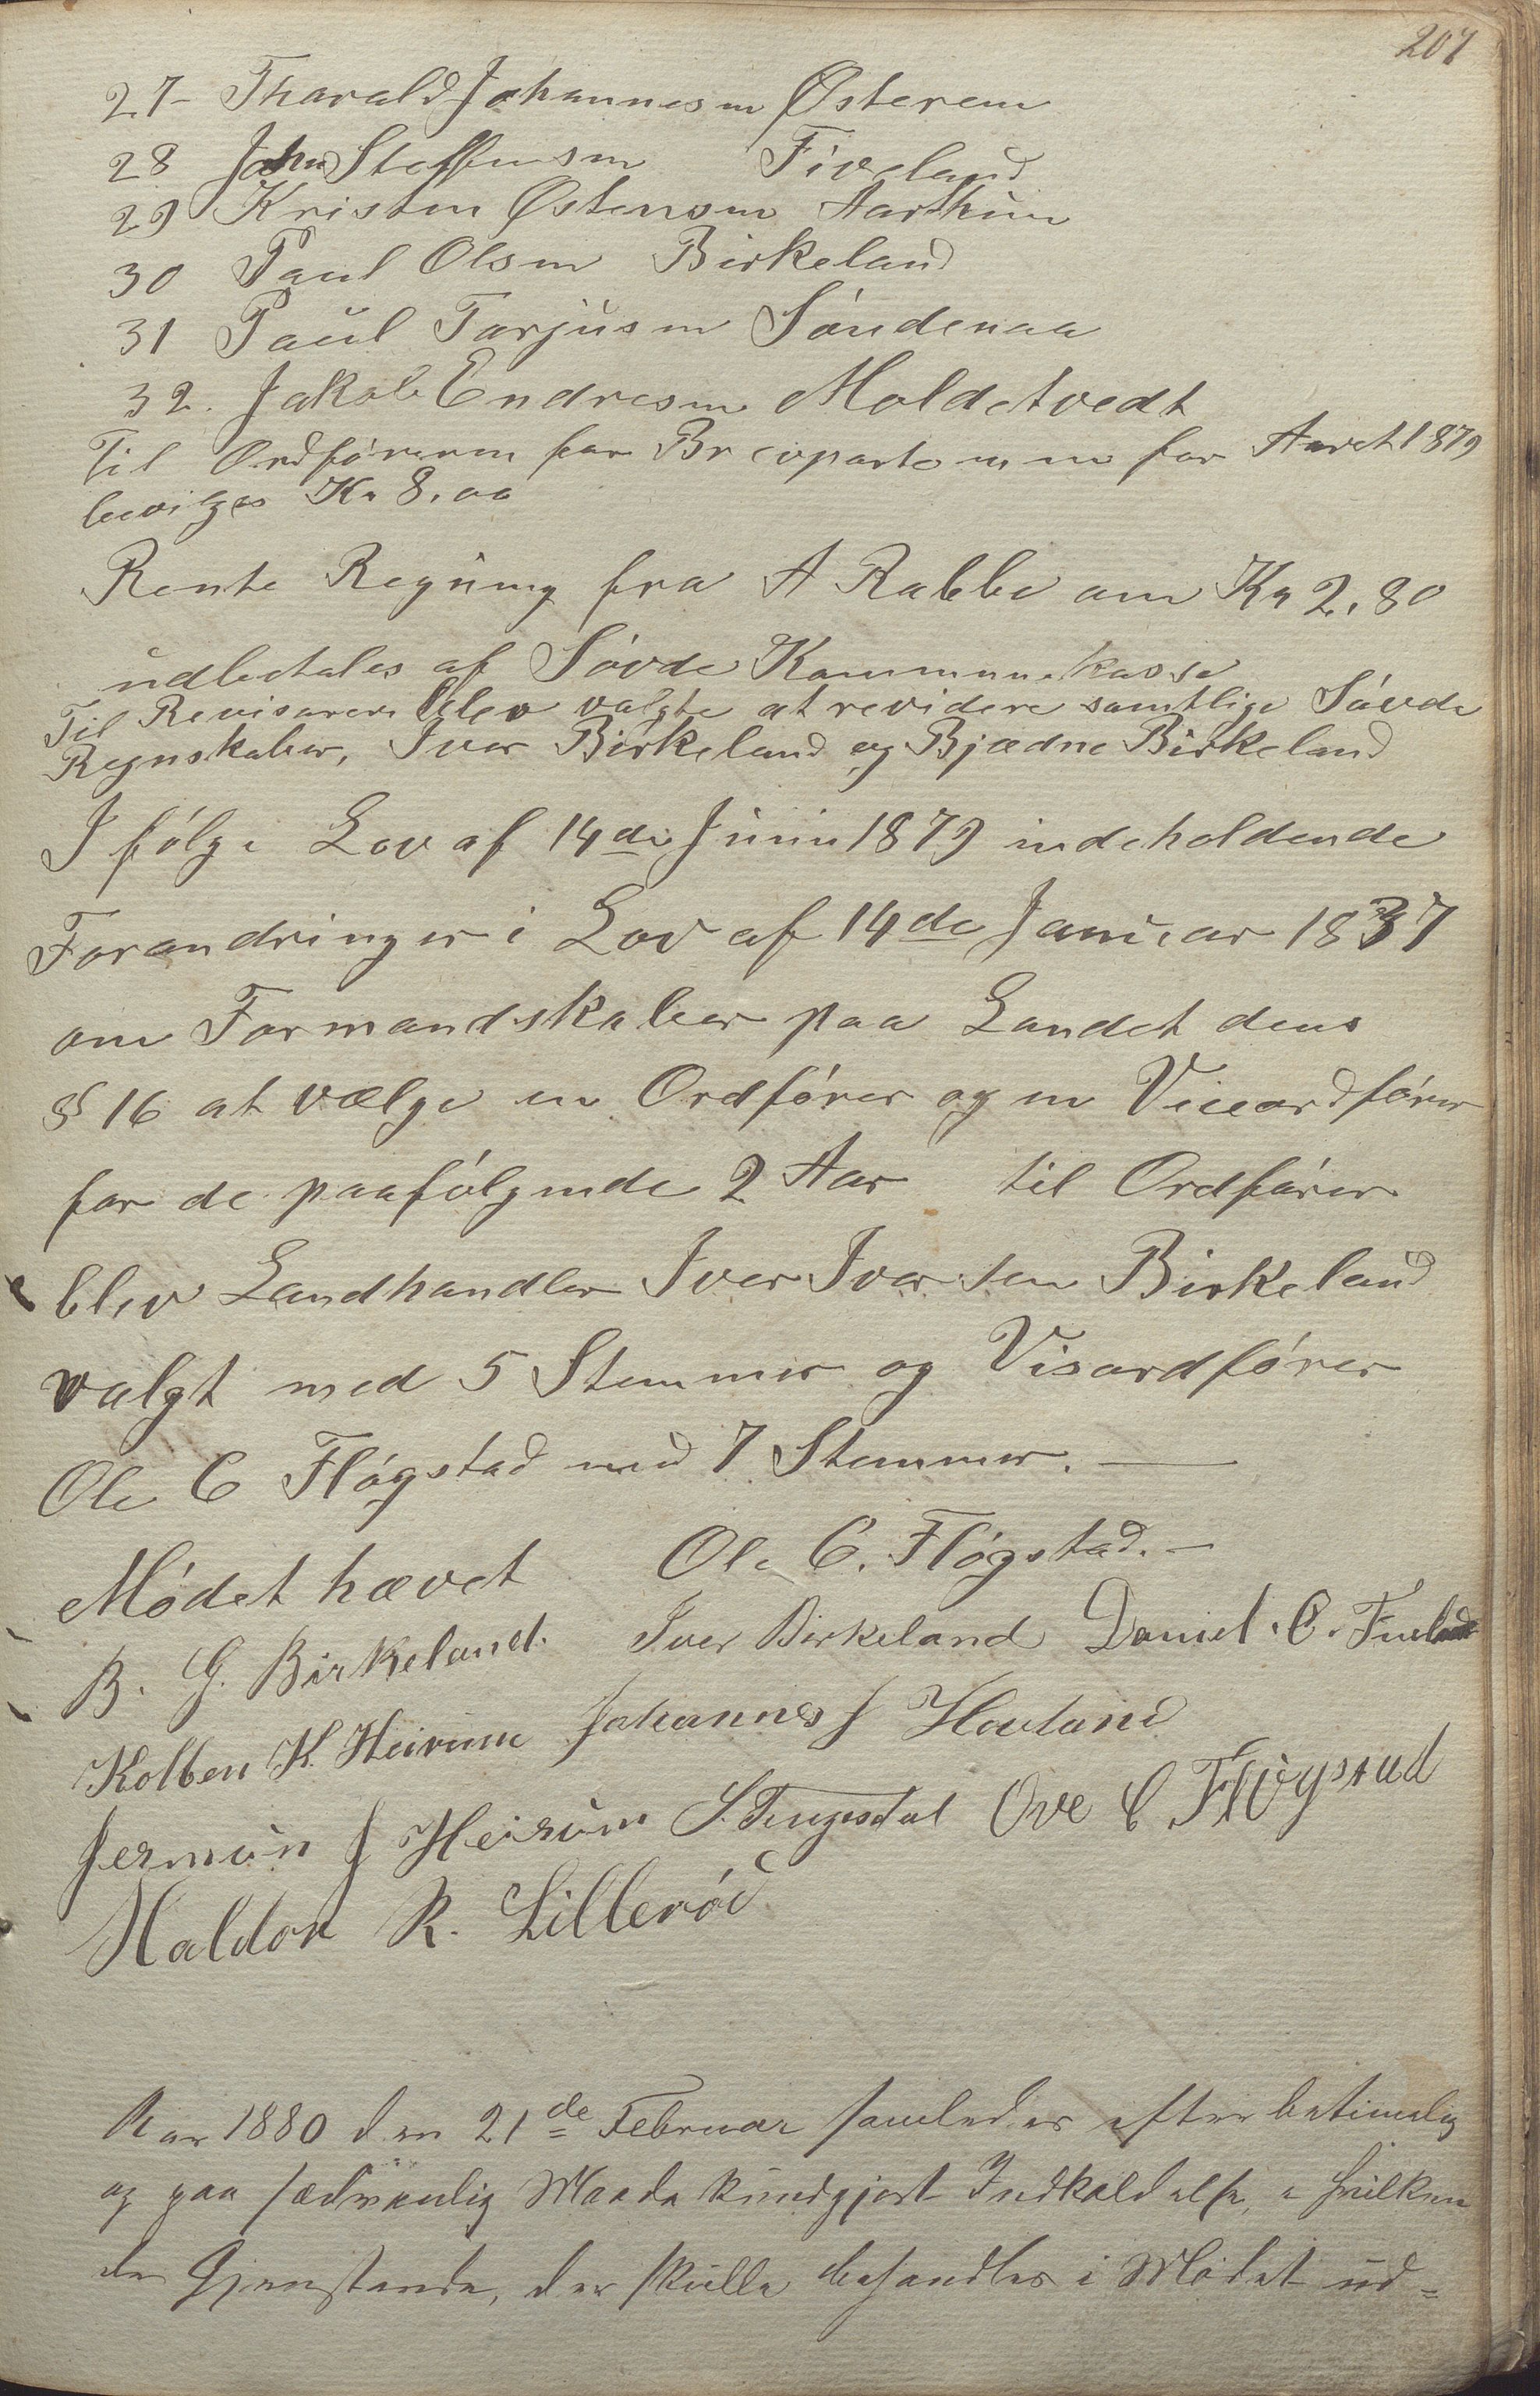 207
27- Tharald Johannesen Østerem
28 John Steffensen Fiveland
29 Kristen Østensen Aarthun
30 Paul Olsen Birkeland
31 Paul Tarjusen Søndenaa
32. Jakob Endresen Moldetvedt
Til Ordføreren for Brevporto m m for Aaret 1879
bevilges Kr 8.00
Rente Regning fra A Rabbe om Kr 2,80
udbetales af Søvde Kommunekasse
Til Revisorere blev valgte at revidere samtlige Søvde
Regnskaber, Iver Birkeland og Bjædne Birkeland
I følge Lov af 14de Juni 1879 indeholdende
Forandringer i Lov af 14de Januar 1837
om Formandskaber paa Landet dens
§ 16 at vælge en Ordfører og en Viceordfører
for de paafølgende 2 Aar til Ordfører
blev Landhandler Iver Iversen Birkeland
valgt med 5 Stemmer og Visordfører
Ole C Fløgstad med 7 Stemmer. —
Mødet hævet Ole C. Fløgstad. —
B. G. Birkeland. Iver Birkeland Daniel. C.
Kolben K. Heirum Johannes J Hovland
Jermun J Heirum S. Tengesdal Ove C. Fløgstad
Haldor R. Lillerød
Aar 1880 den 21de Februar samledes efter betimelig
og paa sædvanlig Maade kundgjort Indkaldelse, i hvilken
de Gjenstande, der skulle behandles i Mødet ud=